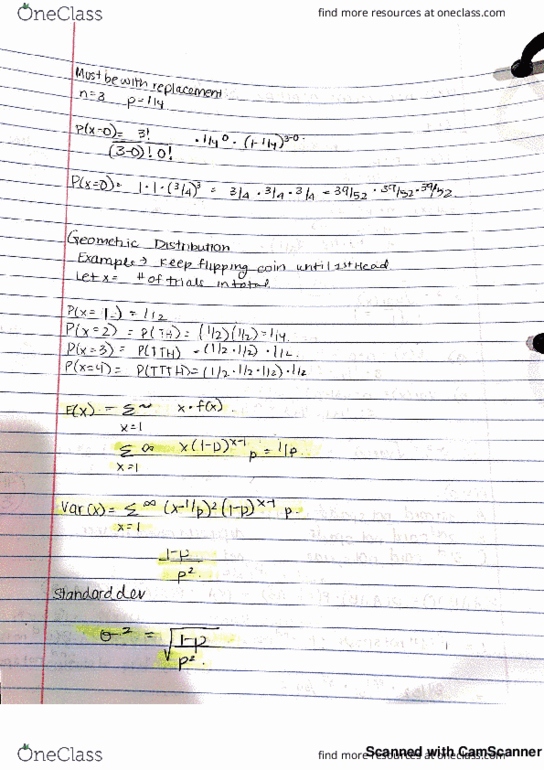 OneClass
find more resources at oneclass.com
Must be with replacement
n=3 p=1/4
P(x=0)= 3! · 1/4⁰ · (1-1/4)³⁻⁰
(3-0)! 0!
P(x=0)= 1·1·(3/4)³ = 3/4 · 3/4 · 3/4 = 39/52 · 39/52 · 39/52
Geometric Distribution
Example → Keep flipping coin until 1st Head
Let x= # of trials in total
P(x=1) = 1/2
P(x=2) = P(TH) = (1/2)(1/2)=1/4
P(x=3) = P(TTH) = (1/2·1/2)·1/2
P(x=4)= P(TTTH)=(1/2·1/2·1/2)·1/2
E(x) = Σ ∞ x·f(x)
x=1
Σ ∞ x(1-p)ˣ⁻¹ p = 1/p
x=1
Var(x)= Σ ∞ (x-1/p)² (1-p)ˣ⁻¹ p
x=1
1-p
p²
Standard dev
σ² = √1-p
p²
OneClass
find more resources at oneclass.com
Scanned with CamScanner